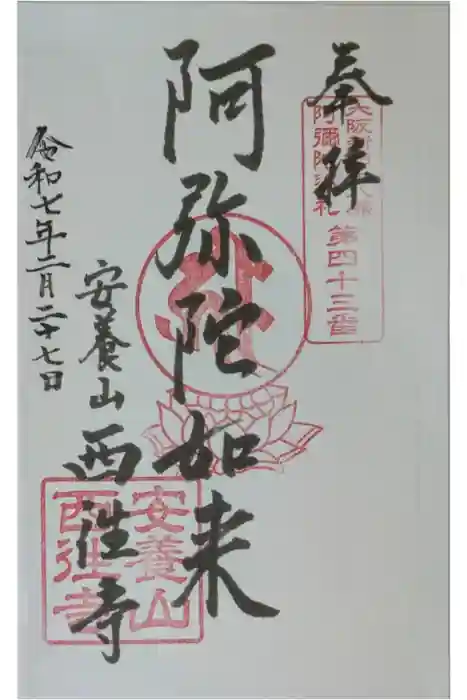 奉拝
大阪新四十八願
阿彌陀巡礼
第四十三番
阿弥陀如来
安養山
西往寺
令和七年二月二十七日
安養山
西往寺